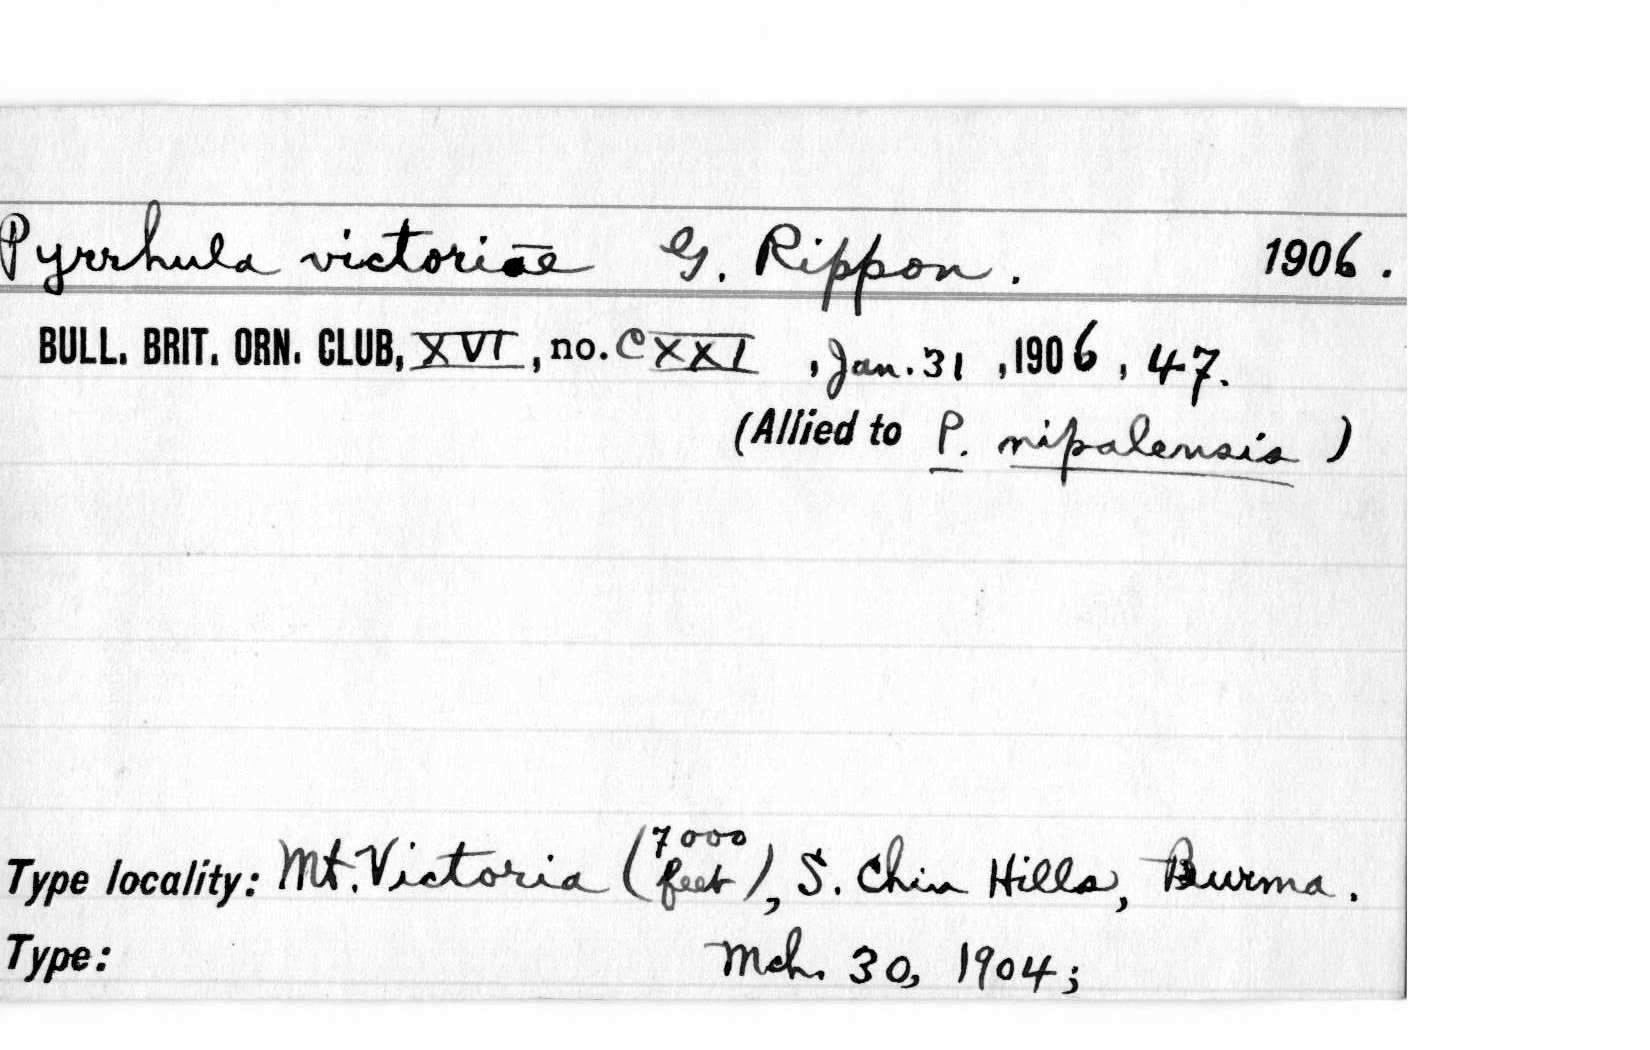 Pyrrhula victoriae G. Rippon. 1906.
BULL. BRIT. ORN. CLUB, XVI, no. CXXI, Jan. 31, 1906, 47.
(Allied to P. nipalensis)
Type locality: Mt. Victoria (7000 feet), S. Chin Hills, Burma.
Type: Mch. 30, 1904;